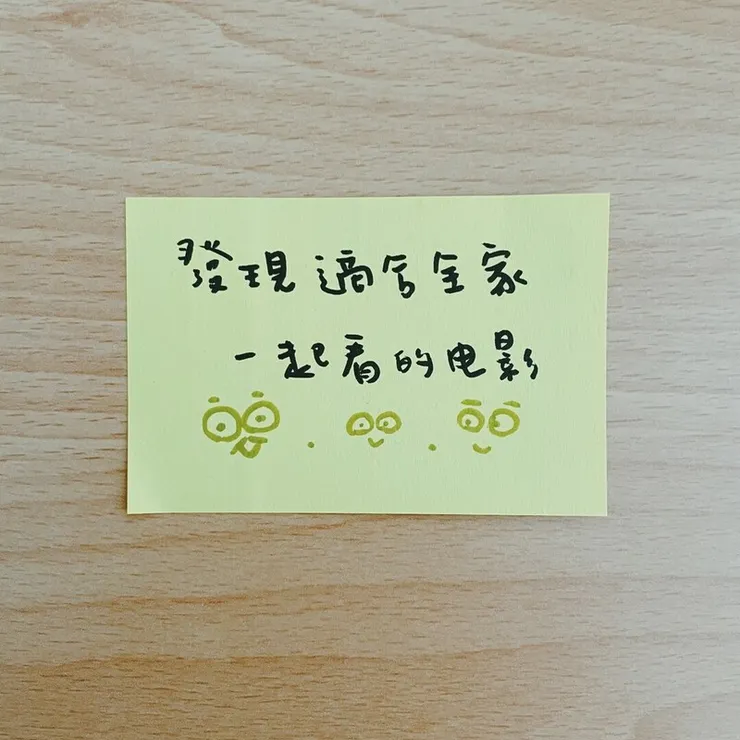 發現適合全家
一起看的电影